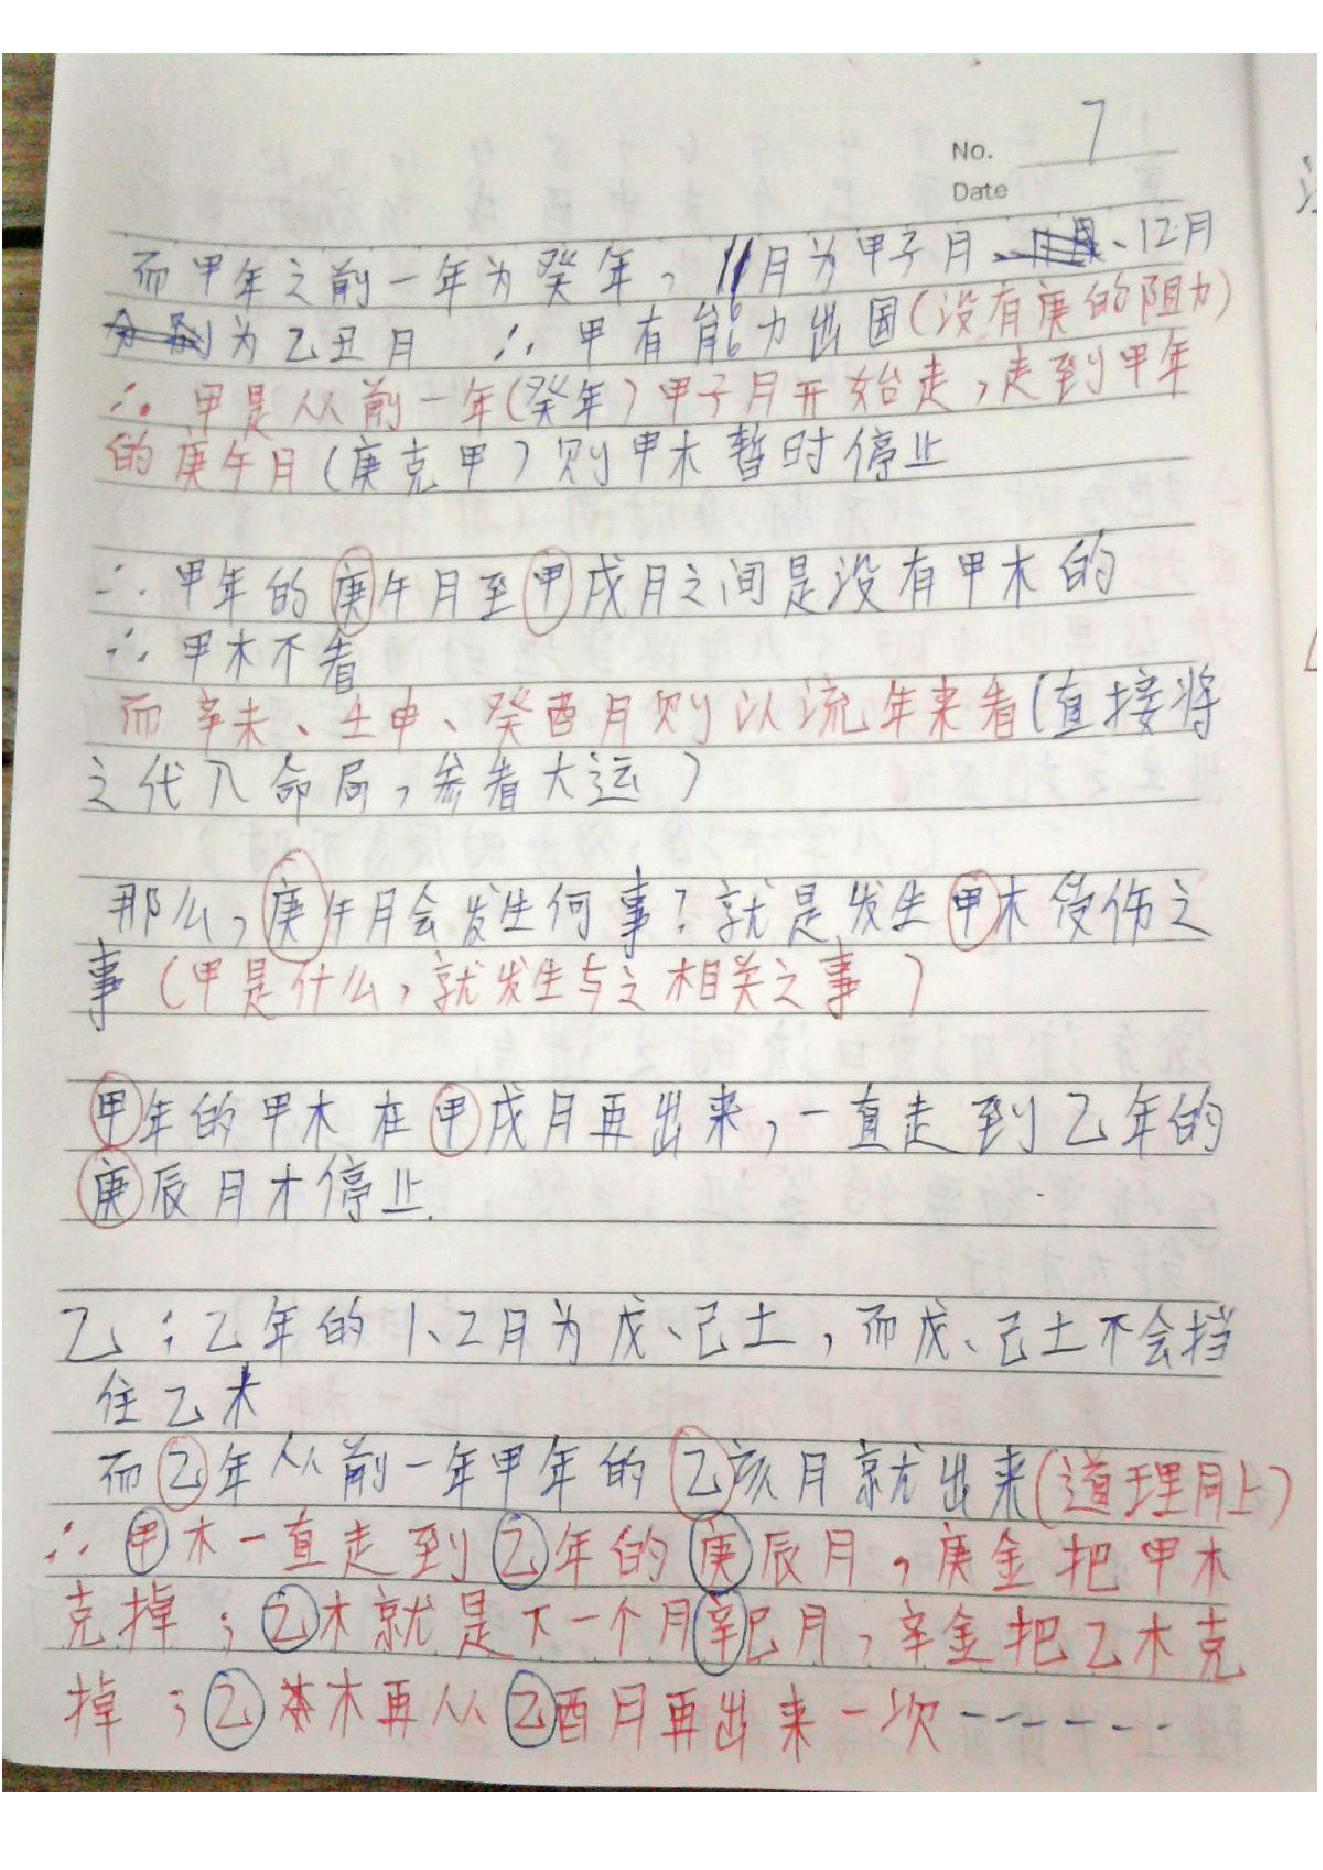 No. 7
Date
而甲年之前一年为癸年，11月为甲子月、12月
为乙丑月 ∴甲有能力出国(没有庚的阻力)
∴甲是从前一年(癸年)甲子月开始走，走到甲年
的庚午月(庚克甲)则甲木暂时停止
∴甲年的庚午月至甲戌月之间是没有甲木的
∴甲木不看
而辛未、壬申、癸酉月则以流年来看(直接将
之代入命局，参看大运)
那么，庚午月会发生何事?就是发生甲木受伤之
事(甲是什么，就发生与之相关之事)
甲年的甲木在甲戌月再出来，一直走到乙年的
庚辰月才停止.
乙：乙年的1、2月为戊、己土，而戊、己土不会挡
住乙木
而乙年从前一年甲年的乙亥月就出来(道理同上)
∴甲木一直走到乙年的庚辰月，庚金把甲木
克掉；乙木就是下一个月辛巳月，辛金把乙木克
掉；乙木再从乙酉月再出来一次-------